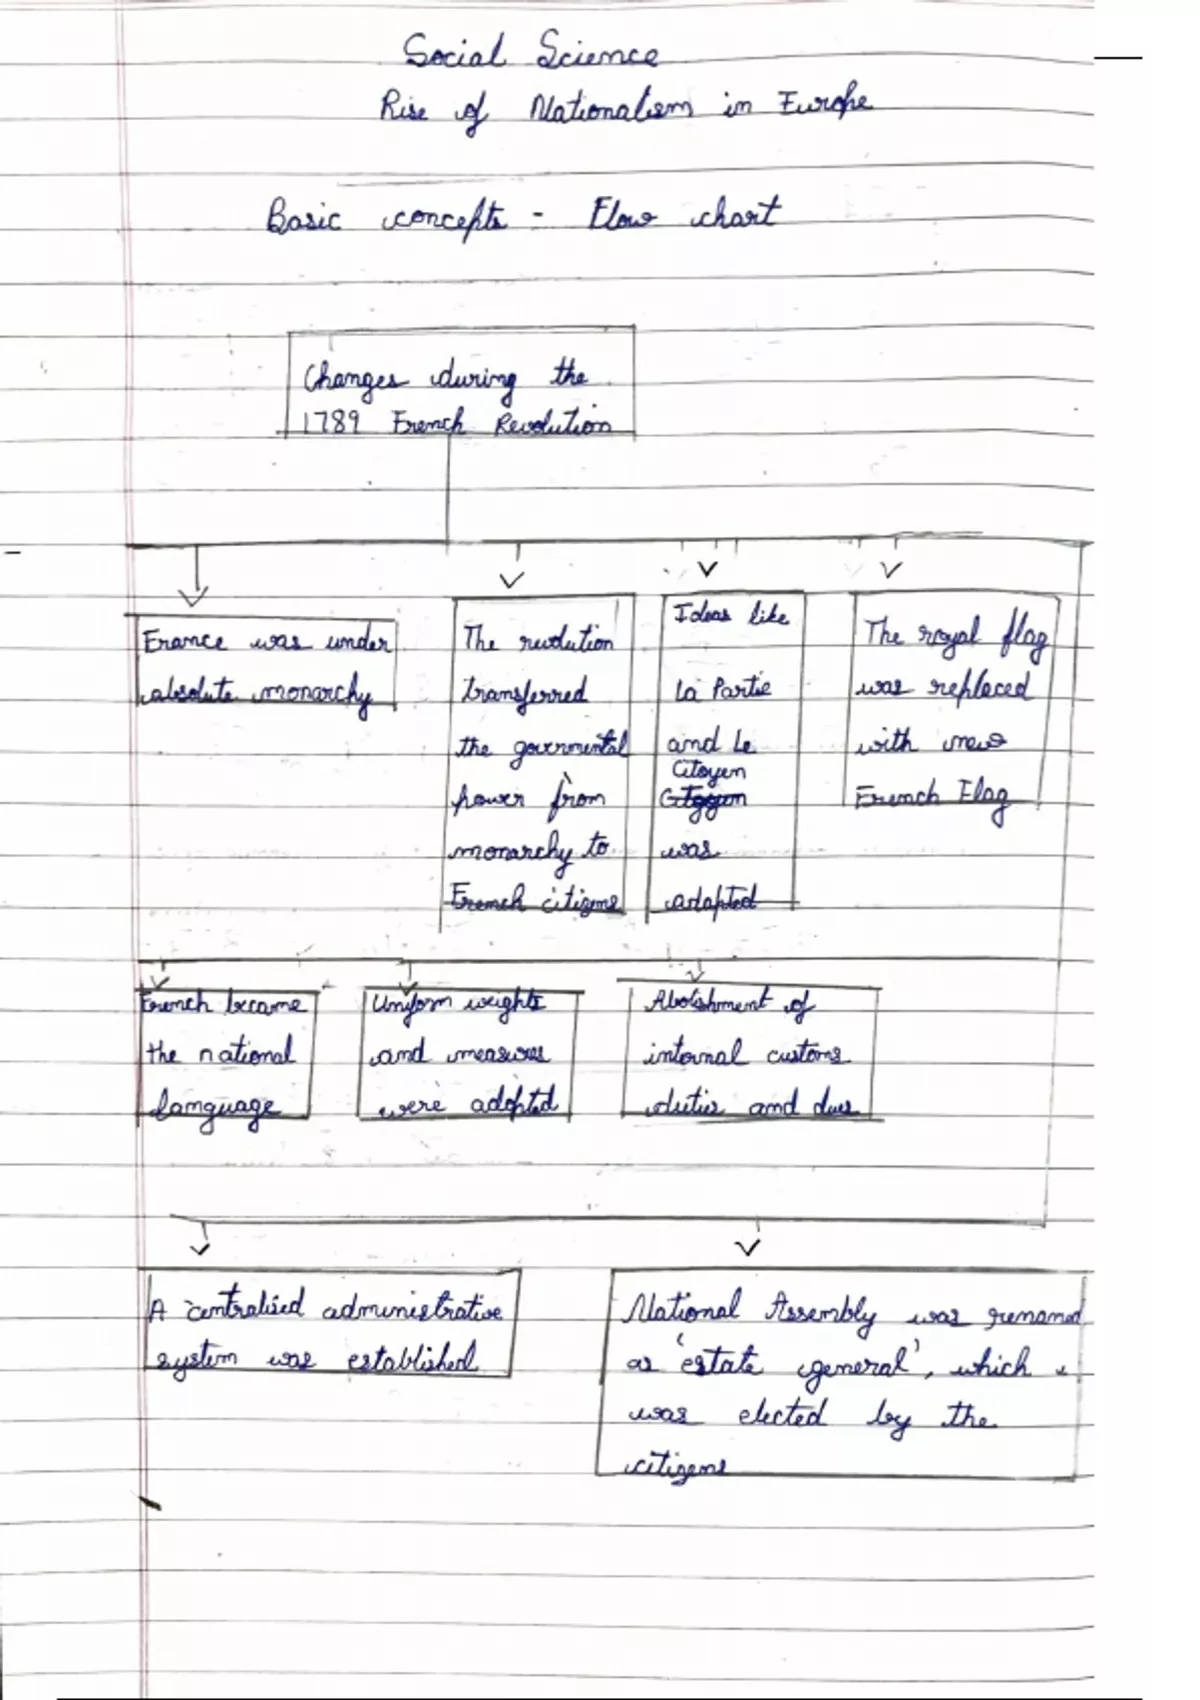 Social Science
Rise of Nationalism in Europe
Basic concepts - Flow chart
Changes during the
1789 French Revolution
France was under
absolute monarchy
The revolution
transferred
the governmental
power from
monarchy to
French citizens
Ideas like
La Partie
and Le
Citoyen
was
adapted
The royal flag
was replaced
with new
French Flag
French became
the national
language
Uniform weights
and measures
were adopted
Abolishment of
internal customs
duties and dues
A centralised administrative
system was established
National Assembly was renamed
as 'estate general', which
was elected by the
citizens